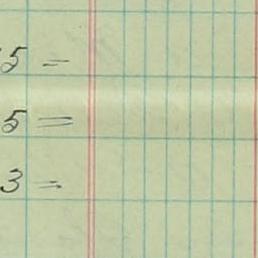 5 =
5 =
3 =